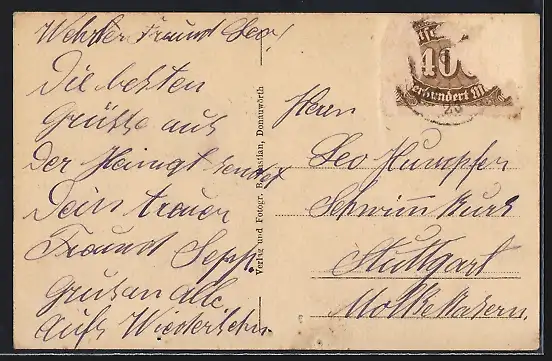 Wehrter Fraund Leo!
Die besten
Grüsse aus
der Heimat sendet
Dein treuer
Fraund Sepp.
Grüsen alle
Aufs Wiedersehn.
Verlag und Fotogr. B. Sebastian, Donauwörth
400
vierhundert M
Herrn
Leo Kumpfer
Schwimmkurs
Stuttgart
Moltkekasern.